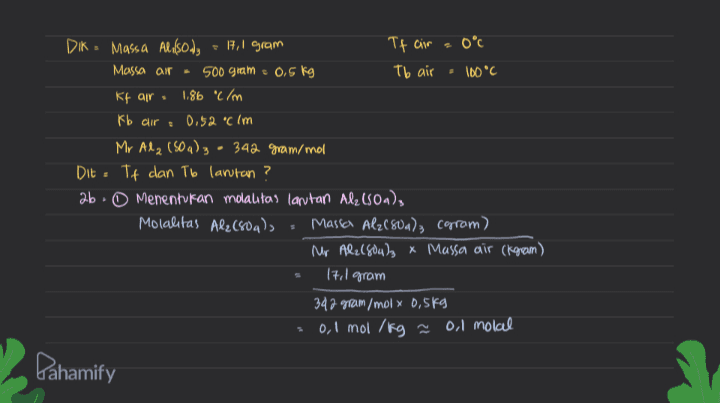 Dik = Massa Al2(SO4)3 = 17,1 gram
Tf air = 0°C
Massa air = 500 gram = 0,5 kg
Tb air = 100°C
Kf air = 1.86 °C/m
Kb air = 0,52 °C/m
Mr Al2(SO4)3 = 342 gram/mol
Dit = Tf dan Tb larutan ?
Jb = ① Menentukan molalitas larutan Al2(SO4)3
Molalitas Al2(SO4)3 = Massa Al2(SO4)3 (gram)
Mr Al2(SO4)3 x Massa air (kgram)
= 17,1 gram
342 gram/mol x 0,5kg
= 0,1 mol/kg ≈ 0,1 molal
Pahamify